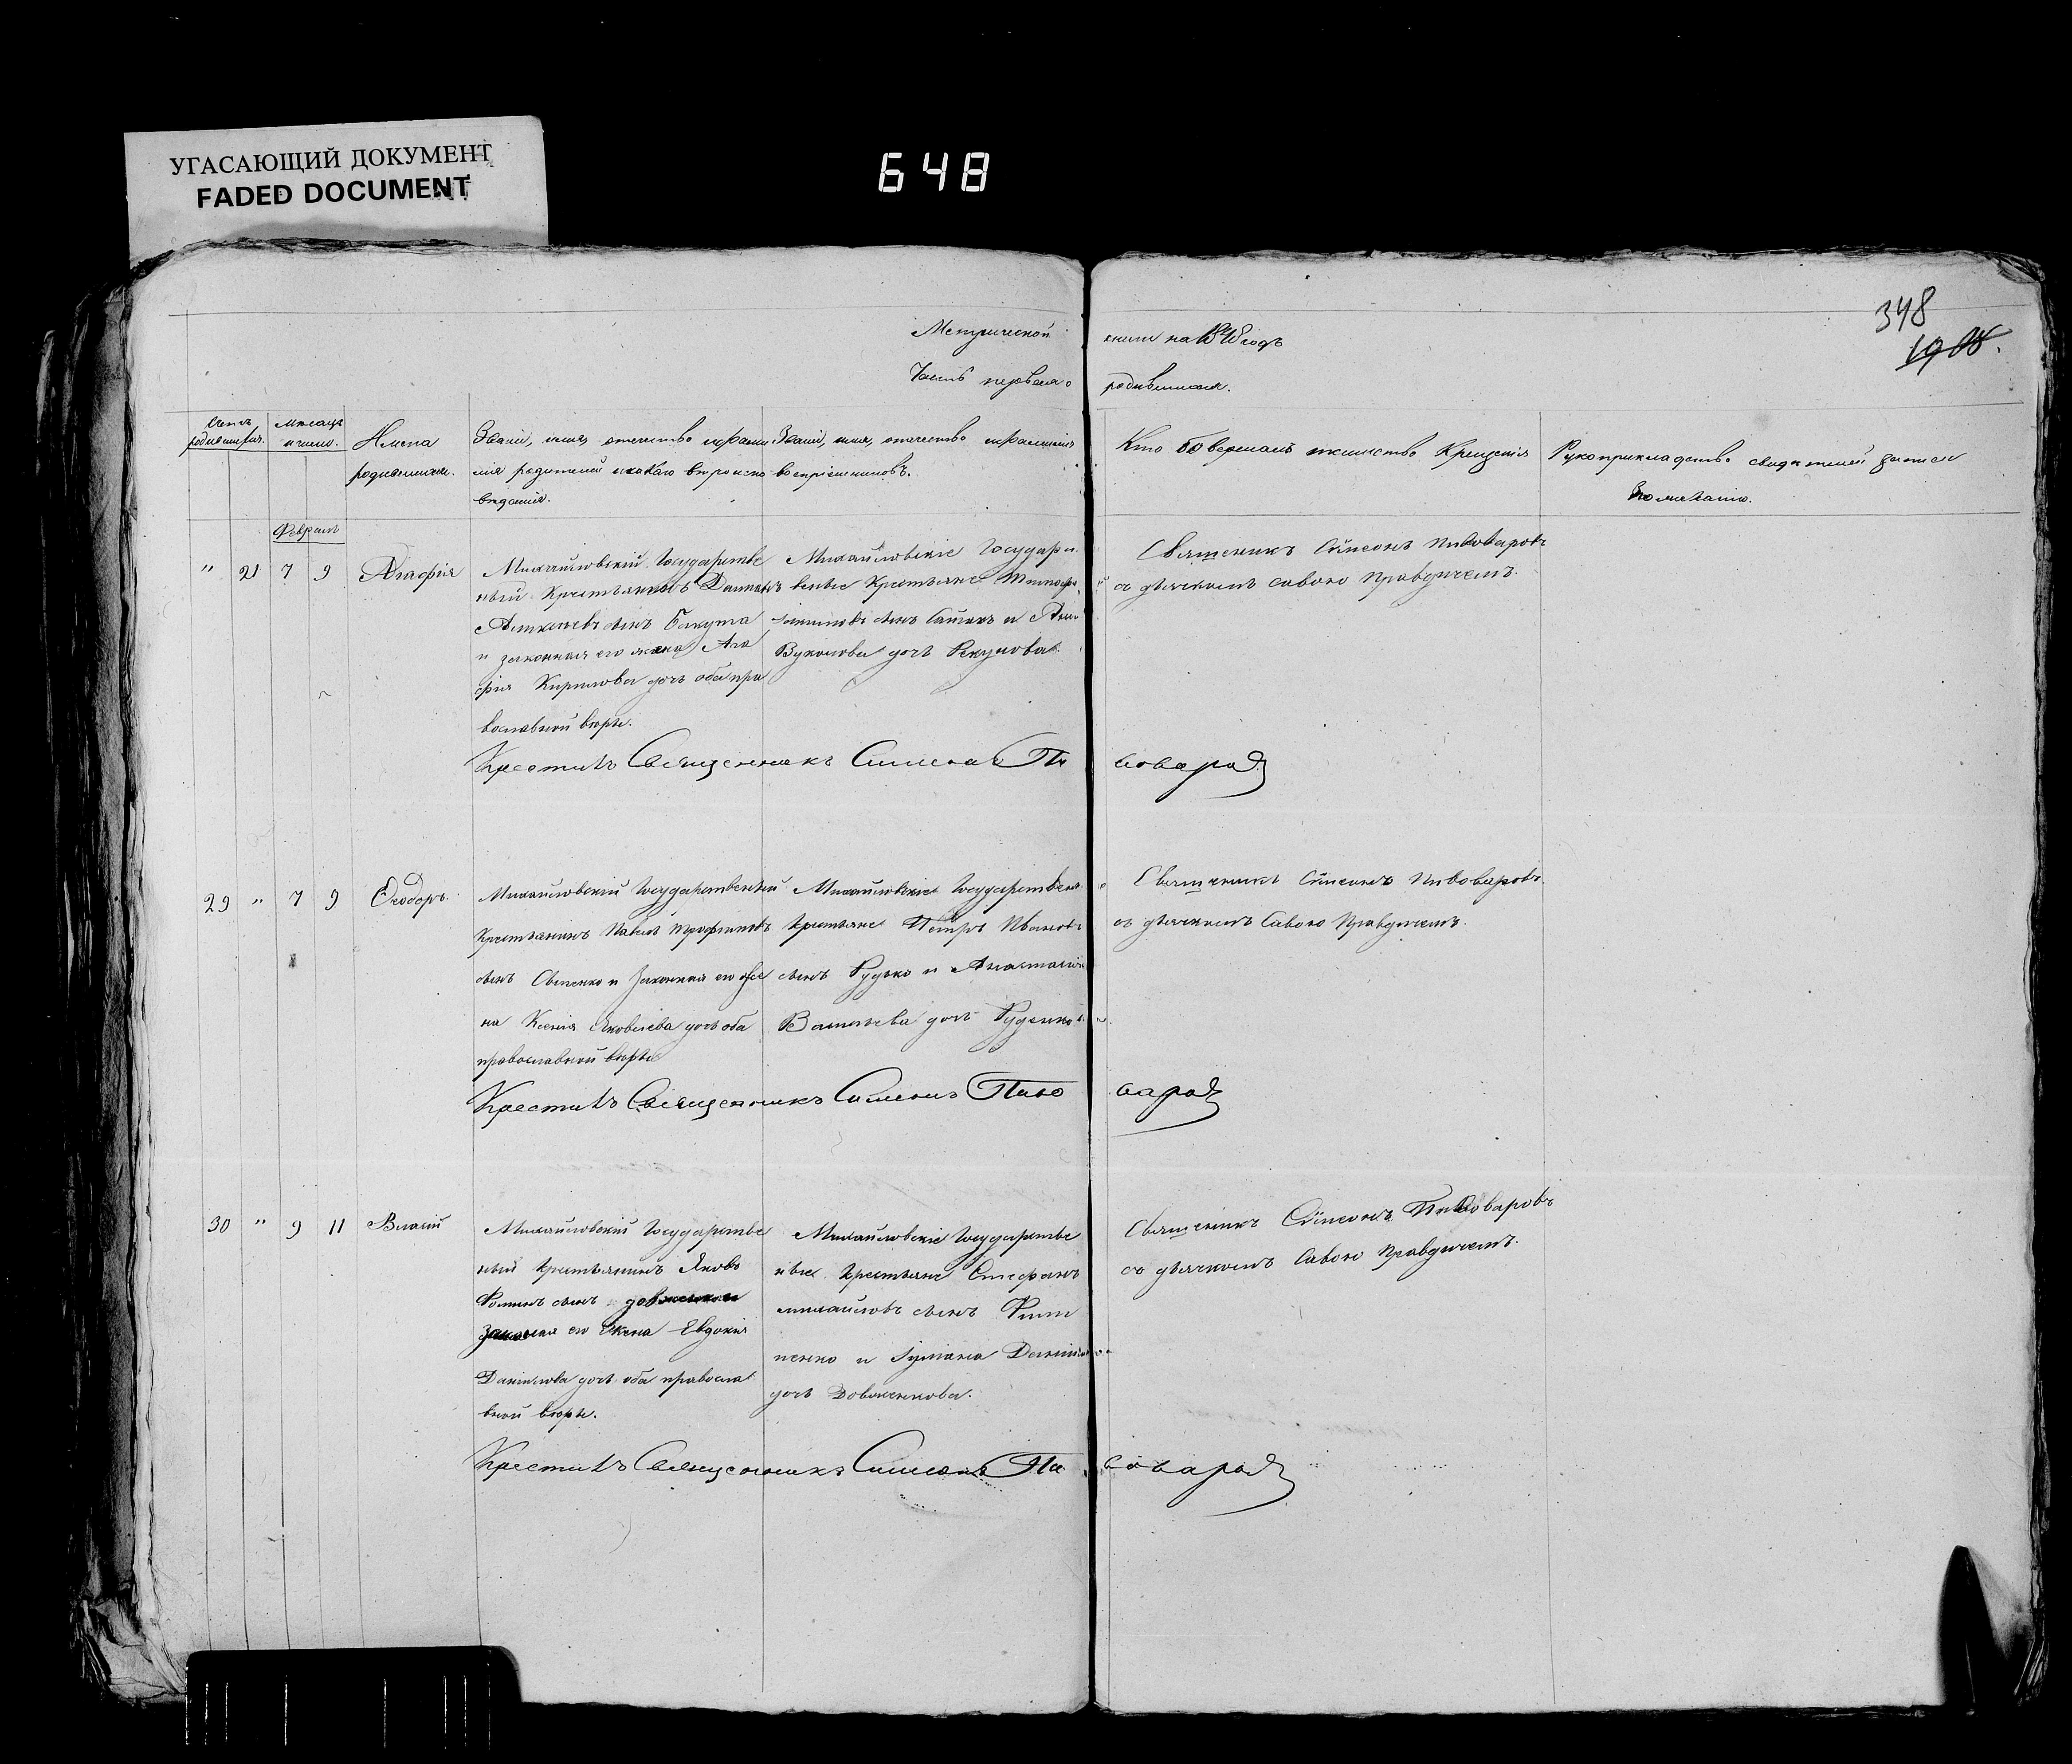 УГАСАЮЩИЙ ДОКУМЕНТ
FADED DOCUMENT
648
348
Метрической книги на годъ
Часть первая о родившихся.
Счетъ родившихся.
Мѣсяцъ и число.
Имена родившихся.
Званіе, имя, отечество
родителей и какаго вѣроиспо
вѣданія.
Званіе, имя, отечество
воспріемниковъ.
Кто совершалъ таинство Крещенія
Рукоприкладство свидѣтелей записи
по желанію.
Февраль
" 21 7 9 Агафія
Михайловскій Государстве
ный Крестьянинъ
сынъ
и законная его жена Ага
фія Кирилова дочь оба пра
вославной вѣры.
Михайловскіе Государст
венные Крестьяне Тимофей
сынъ и
Вуколова дочь
Священикъ Сѵмеонъ Пивоваровъ
съ дьячкомъ Савою Правдичемъ.
Крестилъ Священникъ Симеонъ Пивоваровъ
29 " 7 9 Ѳеодоръ.
Михайловскій Государственный
Крестьянинъ Павелъ Трофимовъ
сынъ и Законная его же
на Ксенія Яковлева дочь оба
православной вѣры
Михайловскіе Государствены
Крестьяне Петръ Ивановъ
сынъ Рудько и Анастасія
Васильева дочь Руденкова
Священикъ Сѵмеонъ Пивоваровъ
съ дьячкомъ Савою Правдичемъ.
Крестилъ Священникъ Симеонъ Пивоваровъ
30 " 9 11 Власій
Михайловскій Государстве
ный Крестьянинъ Яковъ
Фоминъ сынъ
его жена Евдокія
Даніилова дочь оба правосла
вной вѣры.
Михайловскіе Государстве
ные Крестьяне Стефанъ
Михайловъ сынъ Фили
пенко и Іуліана
дочь Довженкова.
Священикъ Сѵмеонъ Пивоваровъ
съ дьячкомъ Савою Правдичемъ.
Крестилъ Священникъ Симеонъ Пивоваровъ